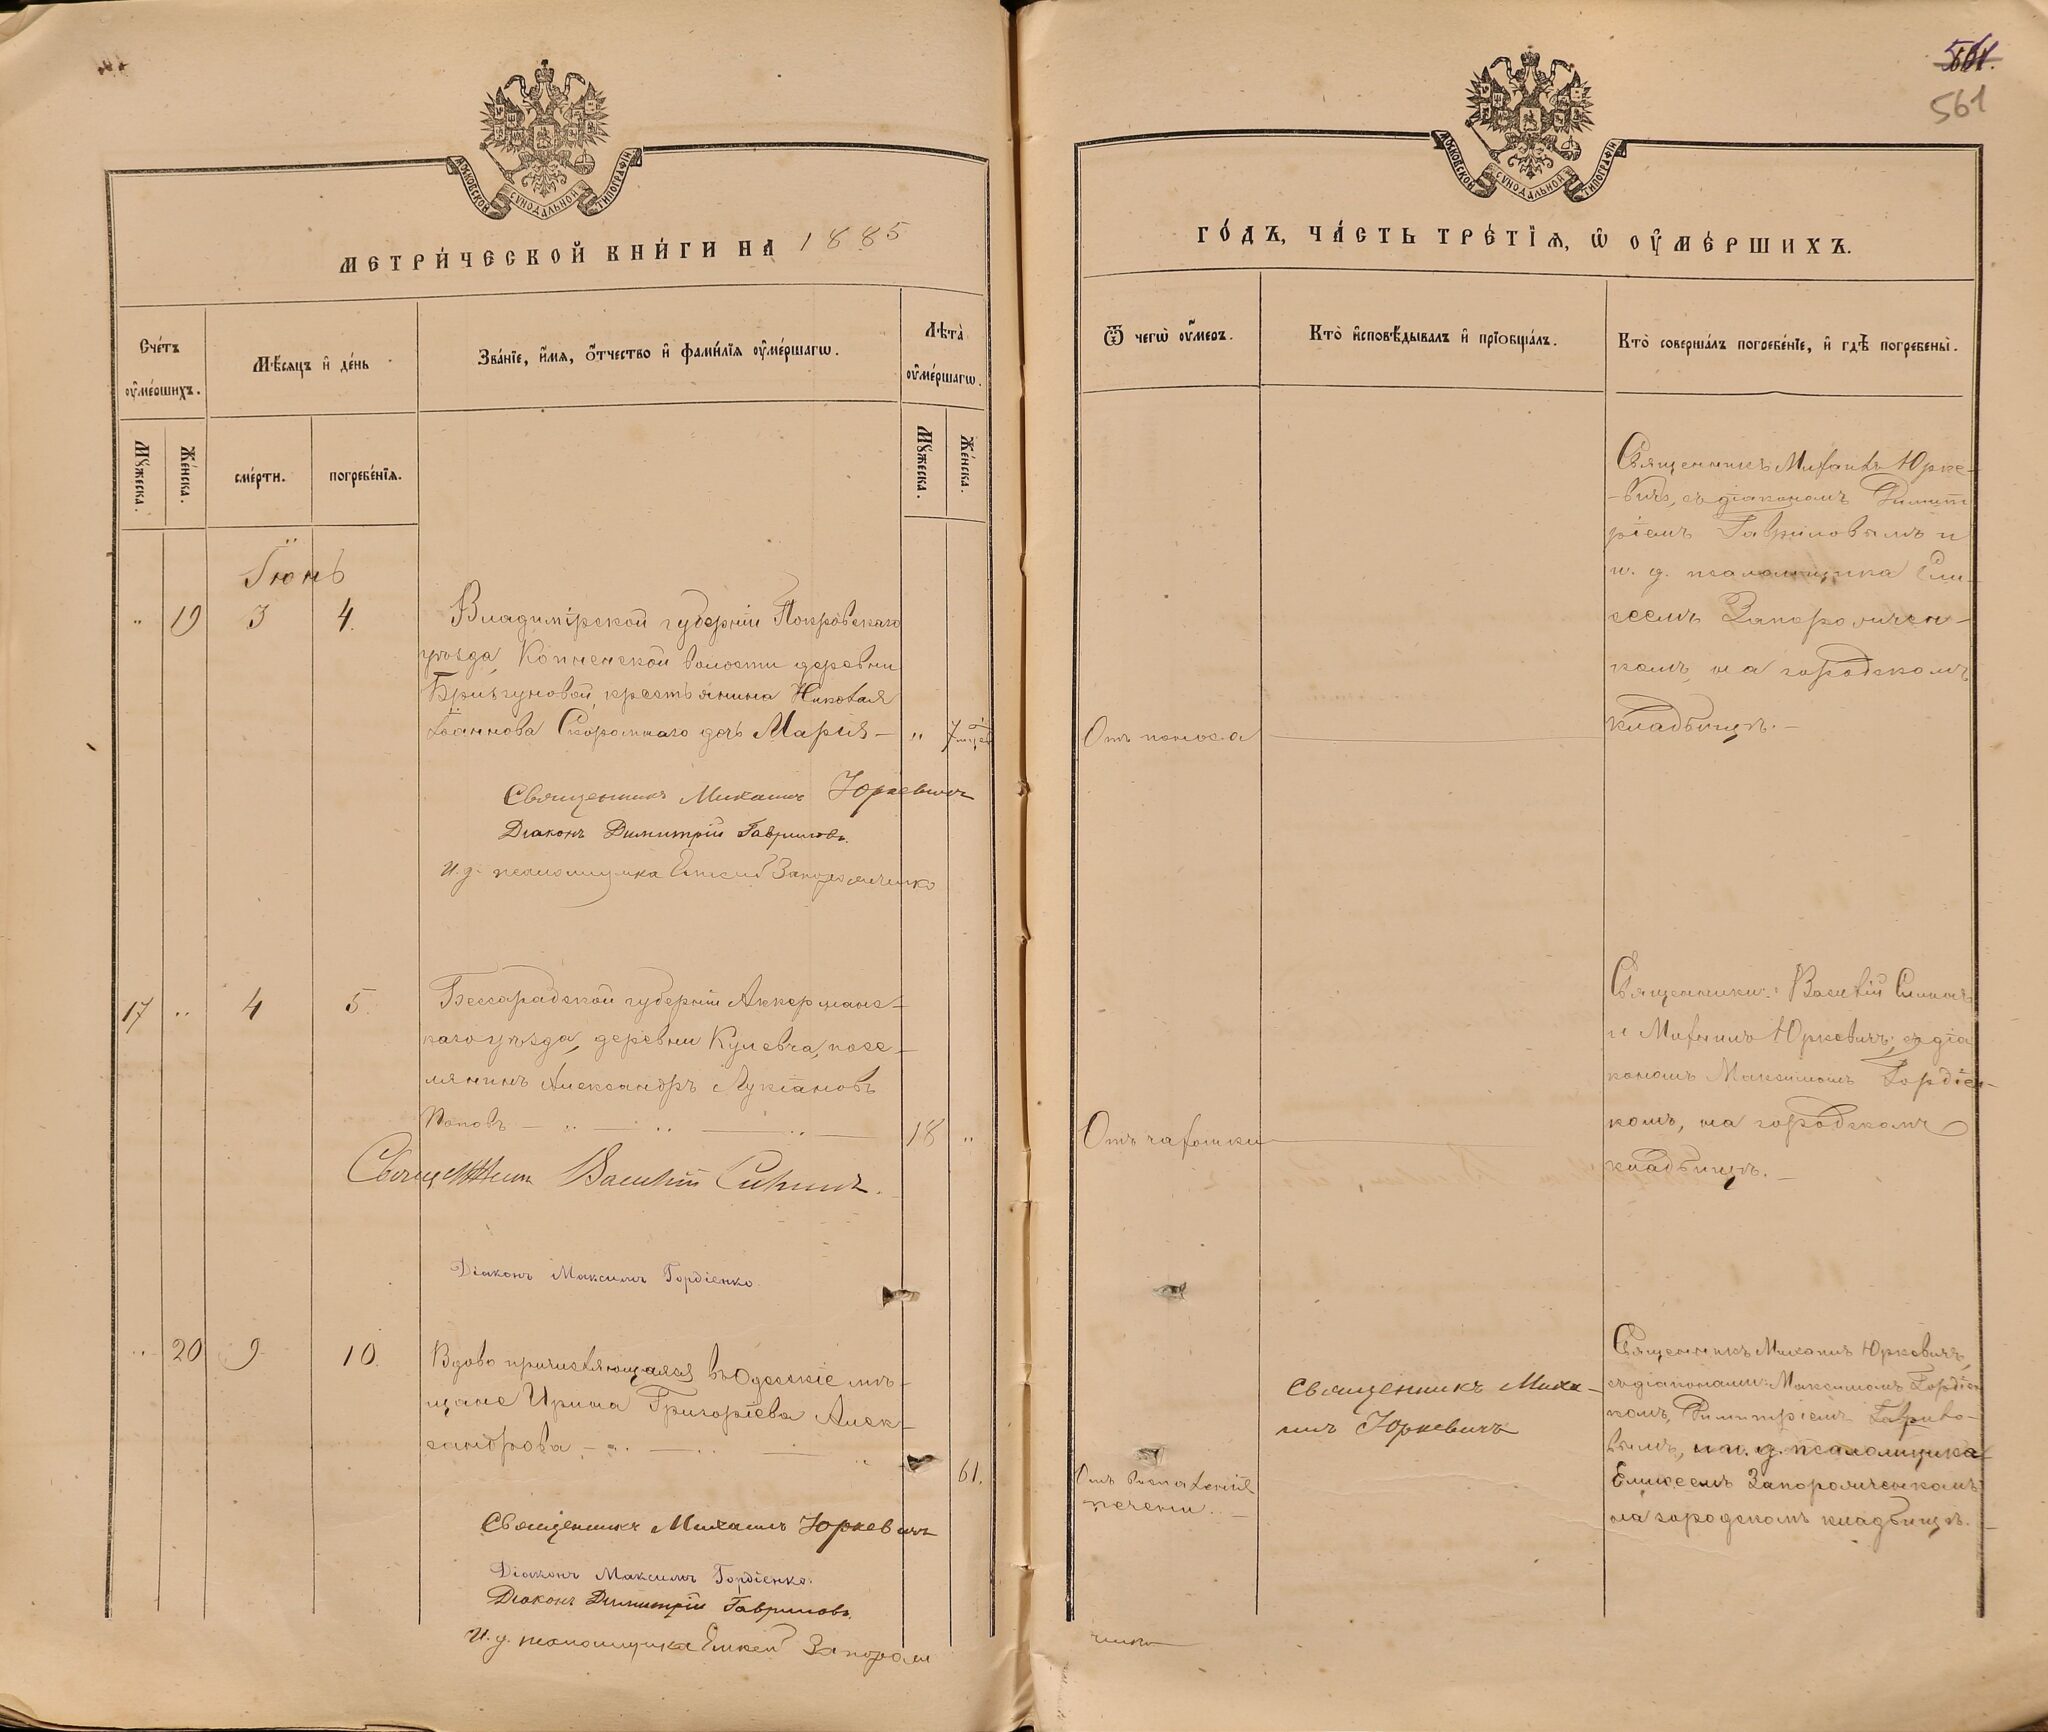 МОСКОВСКОЙ СѴНОДАЛЬНОЙ ТИПОГРАФІИ
МЕТРИ́ЧЕСКОЙ КНИ́ГИ НА 1885
Сче́тъ ᲂу҆ме́ршихъ.
Мѣсяцъ и҆ де́нь
Зва́нїе, и҆́мя, ѻ҆́тчество и҆ фами́лїя ᲂу҆ме́ршагѡ.
Лѣта̀ ᲂу҆ме́ршагѡ.
Мꙋ́жеска.
Же́нска.
сме́рти.
погребе́нїя.
Мꙋ́жеска.
Же́нска.
Іюнь
" 19 3 4.
Владимірской губерніи Покровскаго
уѣзда, Копненской волости деревни
крестьянина Николая
Іоаннова Скоромнаго дочь Марія — " 7 мѣс.
Священникъ Михаилъ Юркевичъ
Діаконъ Димитрій Гавриловъ.
И. д. псаломщика Елисей Запорожченко
17 " 4 5.
Бессарабской губерніи Аккерманс-
каго уѣзда, деревни Кулевча, посе-
лянинъ Александръ Лукіановъ
Поповъ — " — " — " — 18 "
Священникъ Василій
Діаконъ Максимъ Гордіенко.
" 20 9 10.
Вдова причисляющаяся въ Одесскіе мѣ-
щане Ирина Григоріева Алек-
сандрова — " — — " 61.
Священникъ Михаилъ Юркевичъ
Діаконъ Максимъ Гордіенко.
Діаконъ Димитрій Гавриловъ.
И. д. псаломщика Елисей Запорож
561.
561
МОСКОВСКОЙ СѴНОДАЛЬНОЙ ТИПОГРАФІИ
ГО́ДЪ, ЧА́СТЬ ТРЕ́ТЇѦ, Ѡ҆ ОУ҆МЕ́РШИХЪ.
Ѿ чегѡ̀ ᲂу҆́меръ.
Кто̀ и҆сповѣ́дывалъ и҆ прїѻбща́лъ.
Кто̀ соверша́лъ погребе́нїе, и҆ гдѣ̀ погребены̀.
Священникъ Михаилъ Юрке-
-вичъ, съ діакономъ Димит
ріемъ Гавриловымъ и
и. д. псаломщика Ели-
сеемъ Запорожчен-
комъ, на городскомъ
кладбищѣ. —
Отъ поноса
Священники: Василій
и Михаилъ Юркевичъ, съ діа
кономъ Максимомъ Гордіен-
комъ, на городскомъ
кладбищѣ. —
Отъ чахотки
Священникъ Михаилъ Юркевичъ,
съ діаконами: Максимомъ Гордіен
комъ, Димитріемъ Гаврило-
вымъ, и и. д. псаломщика
Елисеемъ Запорожченкомъ
на городскомъ кладбищѣ. —
Священникъ Миха-
илъ Юркевичъ
Отъ воспаленія
печени. —
ченко